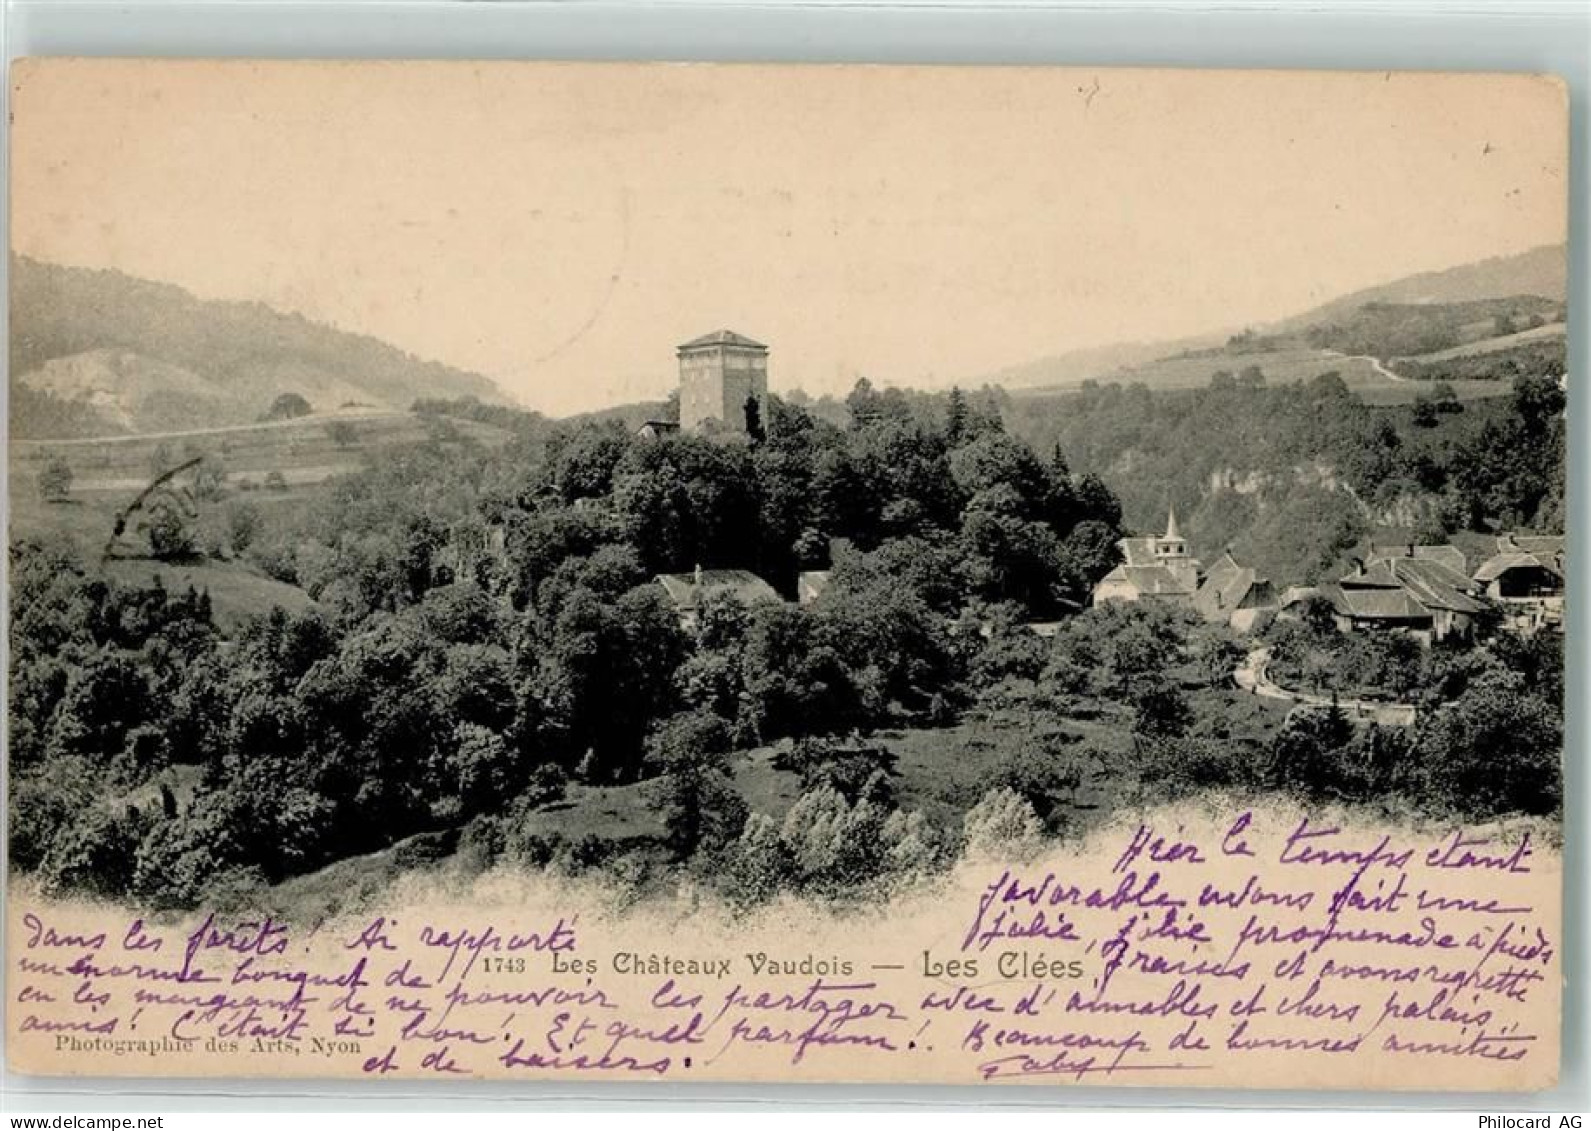 Hier le temps étant
favorable avons fait une
jolie, jolie promenade à pieds
dans les forêts! Ai rapporté
un énorme bouquet de fraises et avons regretté
en les mangeant de ne pouvoir les partager avec d'aimables et chers palais..
amis! C'était si bon! Et quel parfum!. Beaucoup de bonnes amitiés
et de baisers. Gaby
1743 Les Châteaux Vaudois — Les Clées
Photographie des Arts, Nyon
www.delcampe.net
Philocard AG